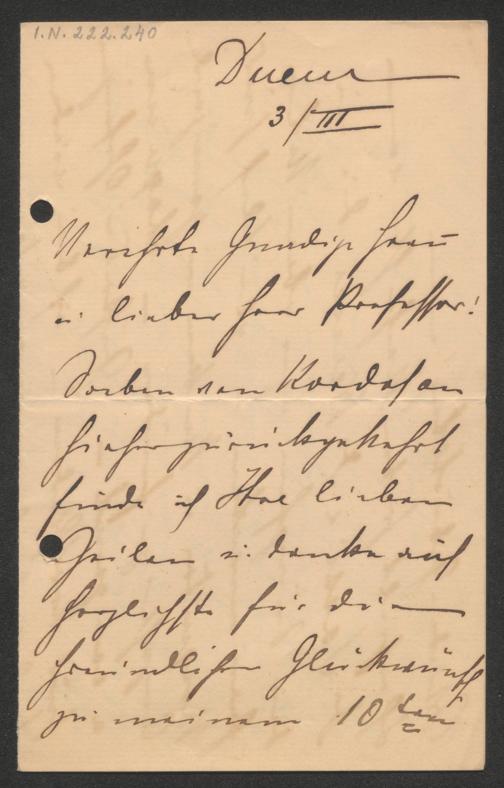 I.N. 222.240
Duem
3/III
Verehrte Gnädige Frau
u. lieber Herr Professor!
Soeben von Kordofan
hieher zurückgekehrt
finde ich Ihre lieben
Zeilen u. danke auf
herzlichste für die
freundlichen Glückwünsche
zu meinem 10 ten